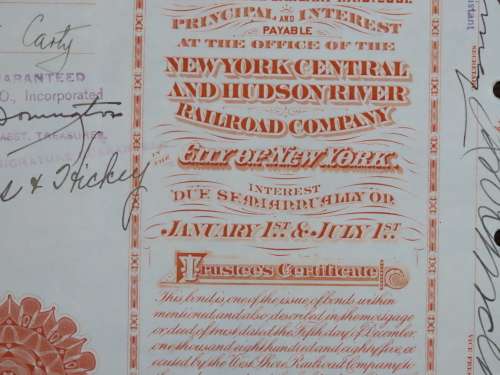 Carty
GUARANTEED
O., Incorporated
ASST. TREASURER
& Hickey
PRINCIPAL AND INTEREST
PAYABLE
AT THE OFFICE OF THE
NEW YORK CENTRAL
AND HUDSON RIVER
RAILROAD COMPANY
IN THE
CITY OF NEW YORK.
INTEREST
DUE SEMIANNUALLY ON
JANUARY 1ST. & JULY 1ST.
Trustee's Certificate
This bond is one of the issue of bonds within
mentioned and also described in the mortgage
or deed of trust dated the Fifth day of December,
one thousand eight hundred and eighty five, ex
ecuted by the West Shore Railroad Company to